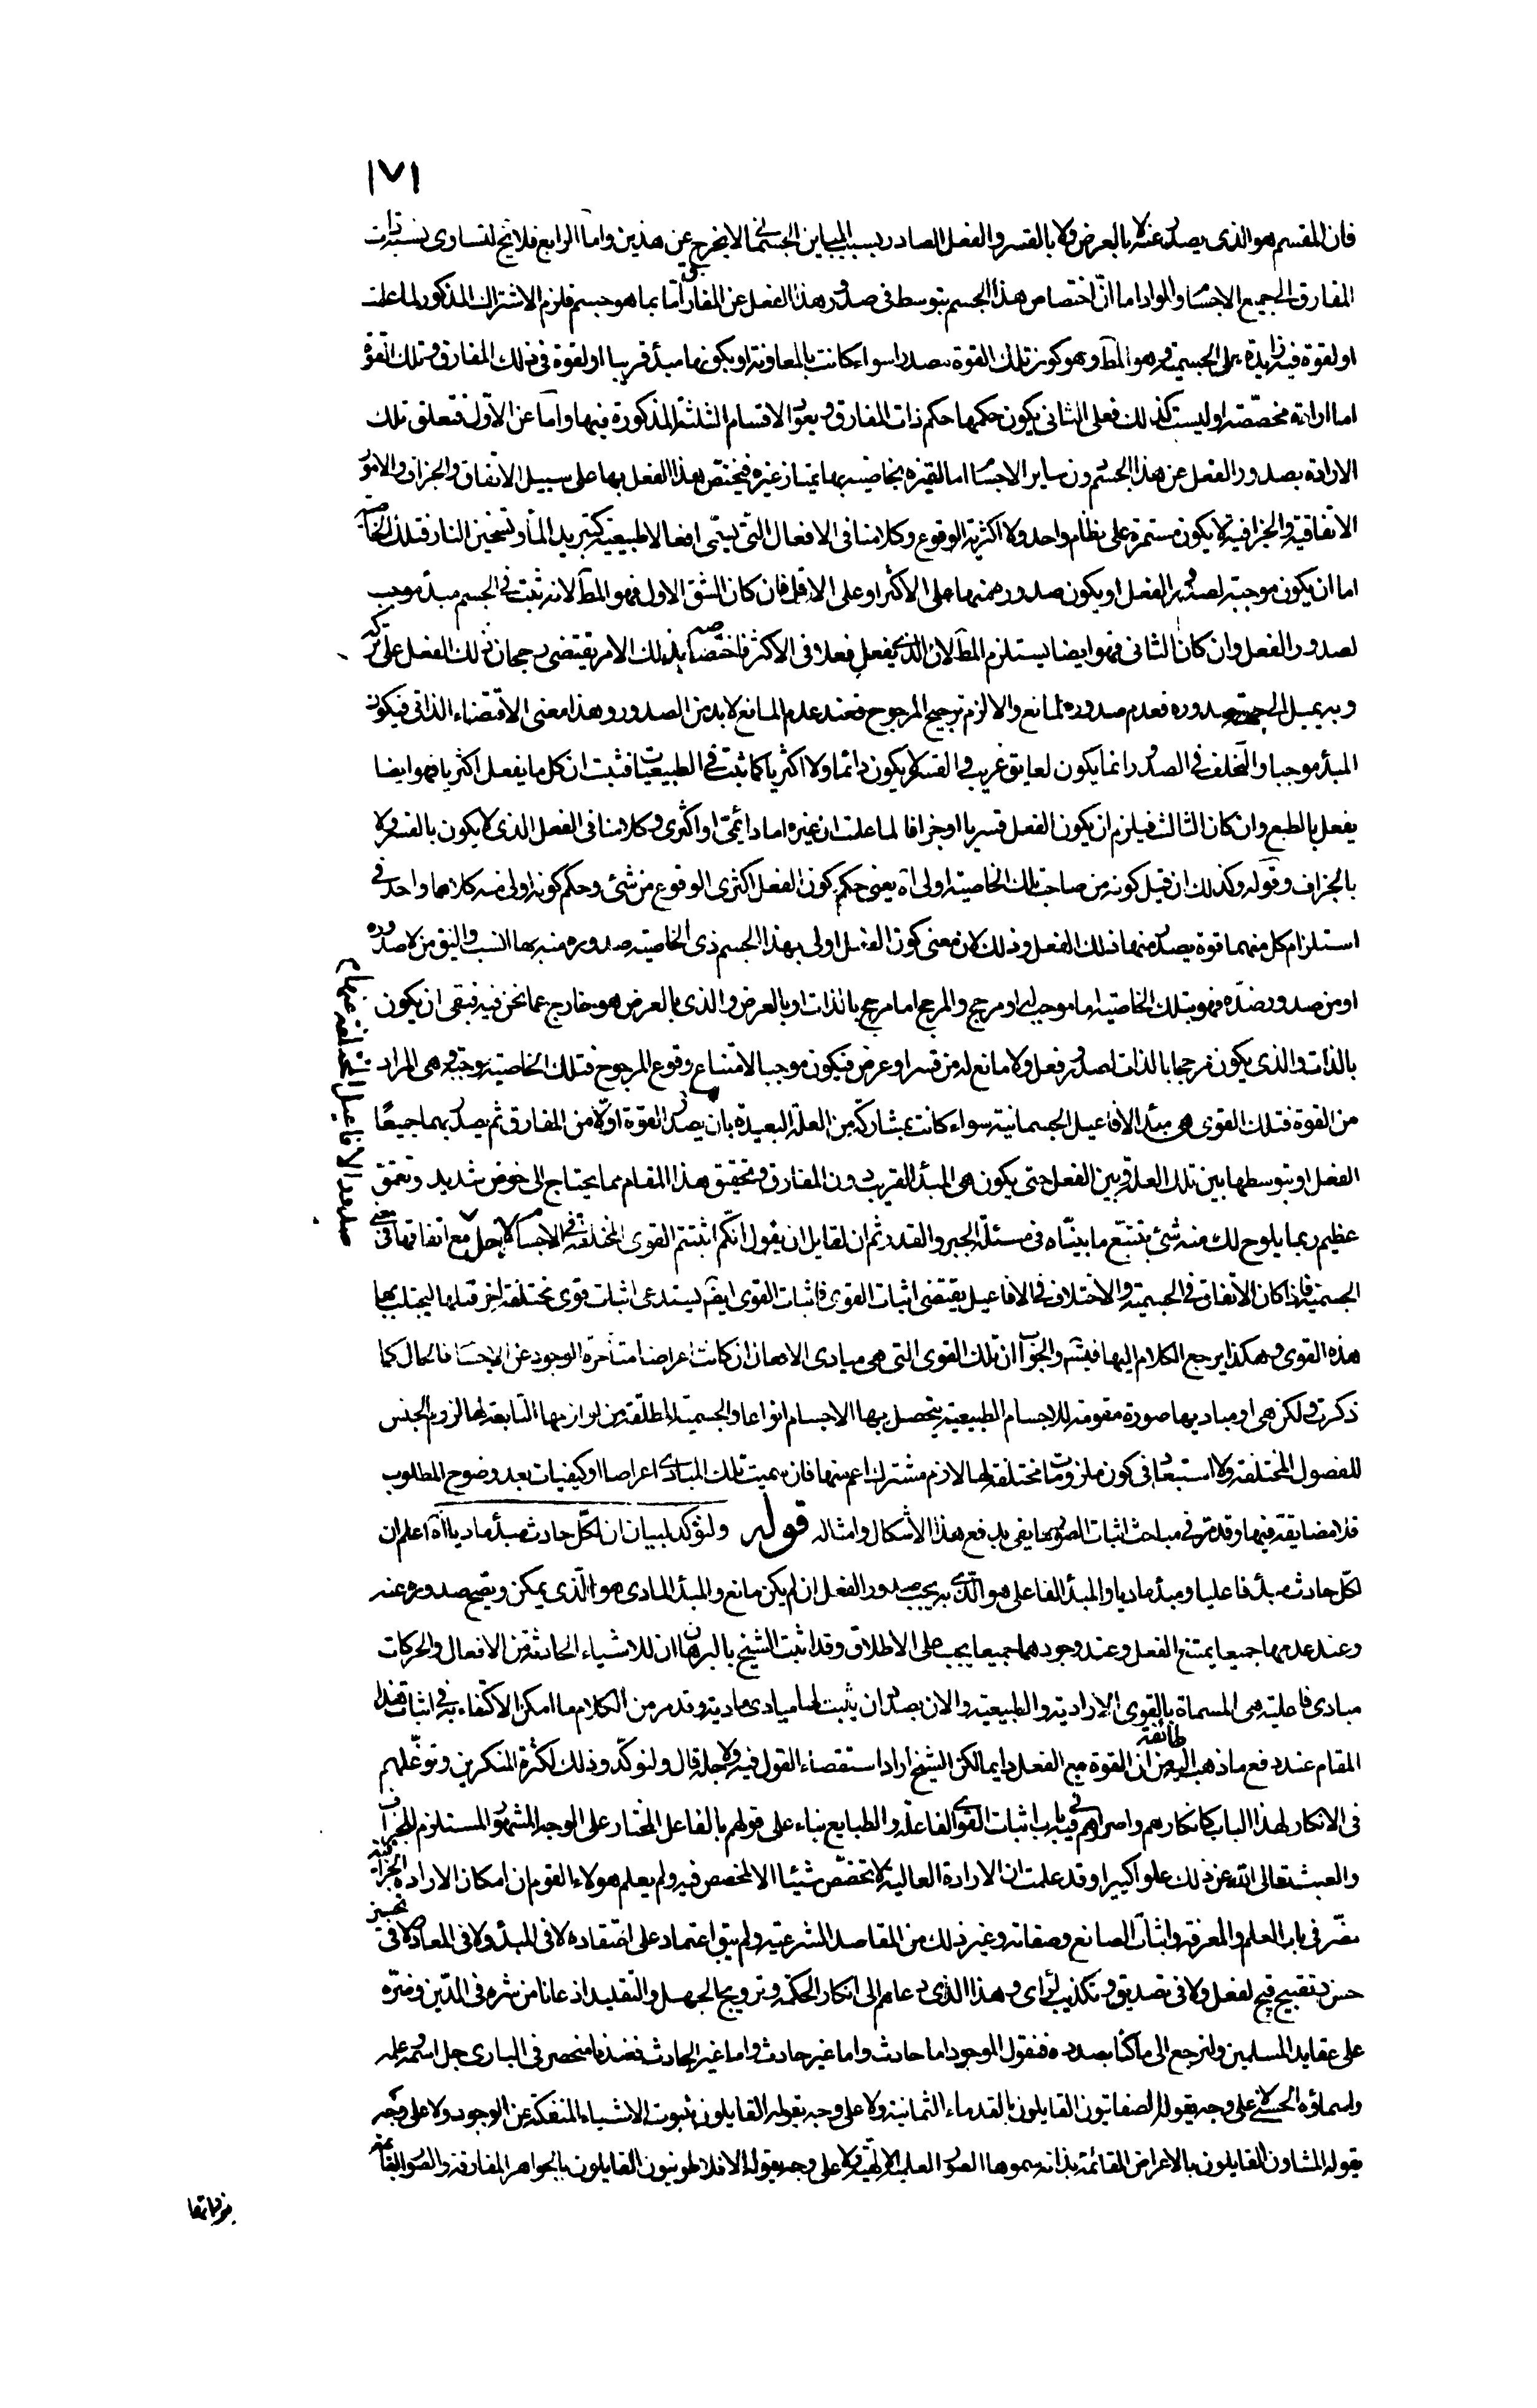 ١٧١
فان المقسم هو الذى يصدر عنه لا بالعرض ولا بالقسر والفعل الصادر بسبب المباين الجسمانى لا يخرج عن هذين واما الرابع فلا يخ لتساوى نسبة ذات
المفارق الى جميع الاجسام والمواد اما انّ اختصاص هذا الجسم بتوسط فى صدور هذا الفعل عن المفارق امّا بما هو جسم فلزم الاشتراك المذكور لما علمت
او لقوة فيه زايدة على الجسمية فهو المط وهو كون تلك القوة مصدرا سواء كانت بالمعاونة او بكونها مبدأ قريبا او لقوة فى ذلك المفارق وتلك القوة
اما ارادة مخصّصة او ليست كذلك فعلى الثانى يكون حكمها حكم ذات المفارق ويعود الاقسام الثلثة المذكورة فيها واما عن الاوّل فتعلق تلك
الارادة بصدور الفعل عن هذا الجسم دون ساير الاجسام اما لتميزه بخاصية بها يمتاز غيره فيختصّ هذا الفعل بها على سبيل الاتفاق والجزاف والامور
الاتفاقية والجزافية لا يكون مستمرة على نظام واحد ولا اكثرية الوقوع وكلامنا فى الافعال التى يسمّى افعالا طبيعية كتبريد الماء وتسخين النار فتلك الخاصية
اما ان يكون موجبة لصدور الفعل او يكون صدوره منها على الاكثر او على الاقل فان كان الشق الاول فهو المط لانه ثبت فى الجسم مبدأ موجب
لصدور الفعل وان كان الثانى فهو ايضا يستلزم المط لان الذى يفعل فعلا فى الاكثر فاختصاصه بذلك الامر يقتضى رجحان ذلك الفعل على تركه
وبه يميل الى جهة صدوره فعدم صدوره لمانع والا لزم ترجيح المرجوح فعند عدم المانع لابد من الصدور وهذا معنى الاقتضاء الذاتى فيكون
المبدأ موجبا والتخلف فى الصدور انما يكون لعايق غريب والقسر لا يكون دائما ولا اكثريا كما ثبت فى الطبيعيات فثبت ان كل ما يفعل اكثريا فهو ايضا
يفعل بالطبع وان كان الثالث فيلزم ان يكون الفعل قسريا او جزافا لما علمت ان غيره اما دائمىّ او اكثرى وكلامنا فى الفعل الذى لا يكون بالقسر ولا
بالجزاف وقوله وكذلك ان قيل كونه من صاحب تلك الخاصية اولى اه يعنى حكم كون الفعل اكثرى الوقوع من شئ وحكم كونه اولى منه كلاهما واحد فى
استلزام كل منهما قوة يصدر منها ذلك الفعل وذلك لان معنى كون الفعل اولى بهذا الجسم ذى الخاصية صدوره منه بها انسب واليق من لا صدوره
او من صدور ضدّه فهو بتلك الخاصية اما موجب له او مرجح والمرجح اما مرجح بالذات او بالعرض والذى بالعرض هو خارج عما نحن فيه فبقى ان يكون
بالذات والذى يكون مرجحا بالذات لصدور فعل ولا مانع له من قسر او عرض فيكون موجبا لامتناع وقوع المرجوح فتلك الخاصية موجبة وهى المراد
من القوة فتلك القوى هى مبدأ الافاعيل الجسمانية سواء كانت بمشاركة من العلة البعيدة بان يصدر القوة اولا من المفارق ثم يصدر بهما جميعًا
الفعل او بتوسطها بين تلك العلة وبين الفعل حتى يكون هى المبدأ القريب دون المفارق وتحقيق هذا المقام مما يحتاج الى خوض شديد وتعمق
عظيم ربما يلوح لك منه شئ بتتبّع ما بيّنّاه فى مسئلة الجبر والقدر ثم ان لقايل ان يقول انكم اثبتتم القوى المختلفة فى الاجسام لاجل مع اتفاقها فى معنى
الجسمية فاذا كان الاتفاق فى الجسمية والاختلاف فى الافاعيل يقتضى اثبات القوى فاثبات القوى ايضا يستدعى اثبات قوى مختلفة اخر قبلها ليجتلب بها
هذه القوى وهكذا يرجع الكلام اليها فيتسلسل والجواب ان تلك القوى التى هى مبادى الافعال ان كانت اعراضا متأخرة الوجود عن الاجسام فالحال كما
ذكرت ولكن هى او مباديها صورة مقومة للاجسام الطبيعية يتحصل بها الاجسام انواعا والجسمية المطلقة من لوازمها التابعة لها لزوم الجنس
للفصول المختلفة ولا استبعاد فى كون ملزومات مختلفة لها لازم مشترك اعم منها فان سميت تلك المبادى اعراضا او كيفيات بعد وضوح المطلوب
فلا مضايقة فيها وقد مرّ فى مباحث اثبات الصور ما يفى بدفع هذا الاشكال وامثاله قوله ولنؤكد لبيان ان لكلّ حادث مبدأ ماديا اه اعلم ان
لكلّ حادث مبدأ فاعليا ومبدأ ماديا والمبدأ الفاعلى هو الذى به يجب صدور الفعل ان لم يكن مانع والمبدأ المادى هو الذى يمكن ويصح صدوره عنه
وعند عدمهما جميعا يمتنع الفعل وعند وجودهما جميعا يجب على الاطلاق وقد اثبت الشيخ بالبرهان ان للاشياء الحادثة من الافعال والحركات
مبادى فاعلية هى المسماة بالقوى الارادية والطبيعية والان بصدد ان يثبت لها مبادى مادية وقد مر من الكلام ما امكن الاكتفاء به فى اثبات هذا
المقام عند دفع ما ذهب اليه طائفة من ان القوة مع الفعل دايما لكن الشيخ اراد استقصاء القول فيه ولاجله قال ولنؤكد وذلك لكثرة المنكرين وتوغلهم
فى الانكار لهذا الباب كانكارهم واصرارهم فى باب اثبات القوى الفاعلة والطبايع بناء على قولهم بالفاعل المختار على الوجه المشهور المستلزم للجزاف
والعبث تعالى الله عن ذلك علوا كبيرا وقد علمت ان الارادة العالية لا تخصّص شيئا الا لمخصص فيه ولم يعلم هولاء القوم ان امكان الارادة الجزافية
مضّر فى باب العلم والمعرفة واثبات الصانع وصفاته وغير ذلك من المقاصد الشرعية ولم يبق اعتماد على اعتقاده لا فى المبدأ ولا فى المعاد ولا فى تحسين
حسن وتقبيح قبيح لفعل ولا فى تصديق وتكذيب لرأى وهذا الذى دعاهم الى انكار الحكمة وترويج الجهل والتقليد اذ عانا من شره فى الدّين وضرّه
على عقايد المسلمين ولنرجع الى ما كنا بصدده فنقول الموجود اما حادث واما غير حادث واما غير الحادث فعندنا منحصر فى البارى جل اسمه وعلمه
واسماؤه الحسنى لا على وجه يقوله الصفاتيون القايلون بالقدماء الثمانية ولا على وجه يقوله القايلون بثبوت الاشياء المنفكة عن الوجود ولا على وجه
يقوله المشاؤن القايلون بالاعراض القائمة بذاته سموها الصور العلمية الالهية ولا على وجه يقوله الافلاطونيون القايلون بالجواهر المفارقة والصور القائمة
بذواتها